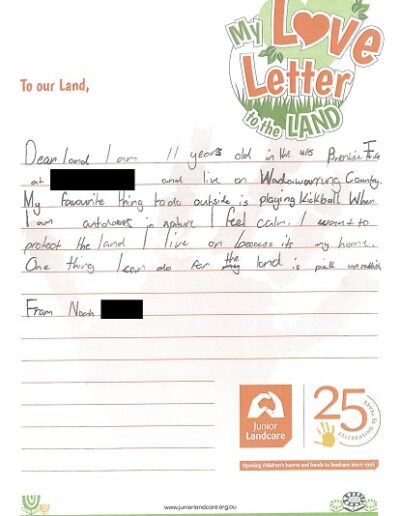 My Love
Letter
to the LAND
To our Land,
Dear land I am 11 years old in the 4/5
at and live on Wadawurrung Country.
My favourite thing to do outside is playing Kickball. When
I am in nature I feel calm. I want to
protect the land I live on because its my home.
One thing I can do for the land is pick up rubbish
From Noah
Junior
Landcare
25
CELEBRATING 25 YEARS
Opening children's hearts and hands to landcare since 1998
www.juniorlandcare.org.au